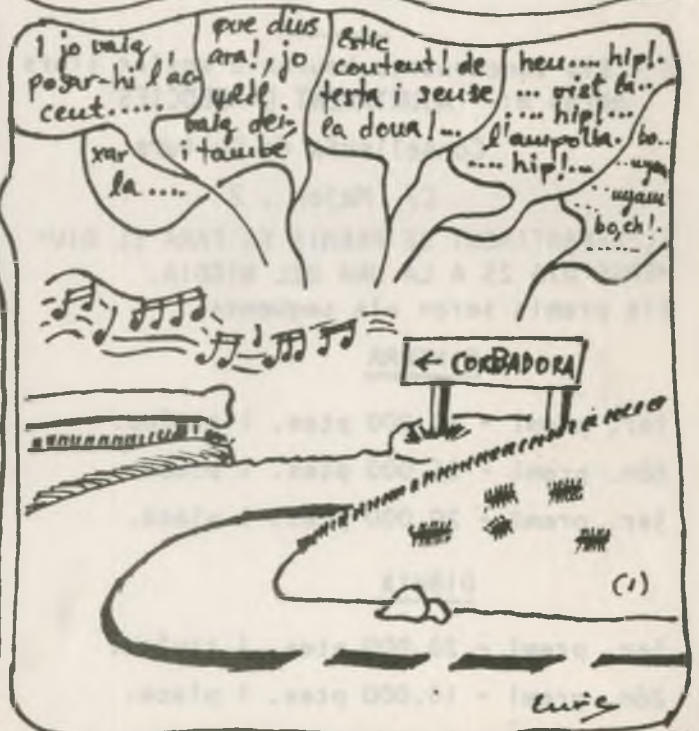 I jo vaig
posar-hi l'ac-
cent.....
xar
la ....
que dius
ara!, jo
vaig dei-
i també
Estic
content! de
festa i sense
la dona!...
heu.... hip!.
... vist la..
... hip!...
l'ampolla.
.... hip!...
bo..
..nyam
nyam
bo,eh!.
← CORBADORA
(1)